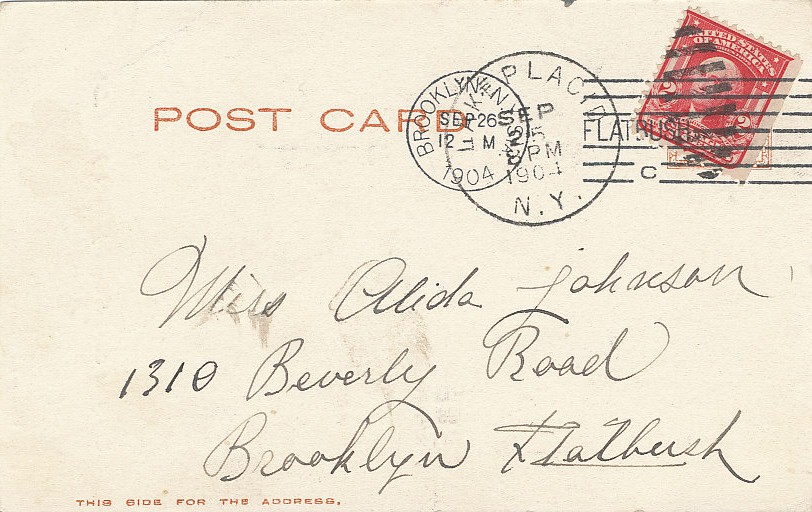 POST CARD
BROOKLYN N.Y. STA.
SEP 26
12 M
1904
PLACID
SEP
PM
1904
N.Y.
FLATBUSH
C
UNITED STATES
OF AMERICA
2 2
Miss Alida Johnson
1310 Beverly Road
Brooklyn Flatbush
THIS SIDE FOR THE ADDRESS.